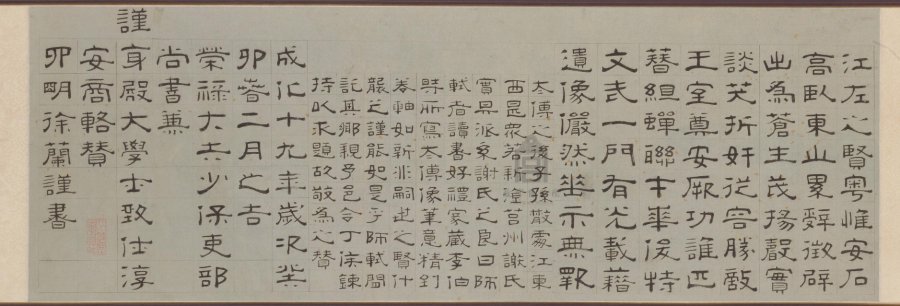 江左之賢粵惟安石
高臥東山累辭徵辟
出為蒼生茂揚聲實
談笑折奸從容勝敵
王室奠安厥功誰匹
簪組蟬聯本華後特
文武一門有光載籍
遺像儼然垂示無斁
太傅之後子孫散處江東
西是眾若新澄莒州謝氏
實其派系謝氏之良曰師
軾者讀書好禮家藏李伯
時所寫太傅像筆意精到
卷軸如新非嗣世之賢什
襲之謹能如是乎師軾間
託其鄉親予邑令丁侯鍊
持以求題故敬為之贊
成化十九年歲次癸
卯春二月之吉
榮祿大夫少保吏部
尚書兼
謹身殿大學士致仕淳
安商輅贊
四明徐蘭謹書